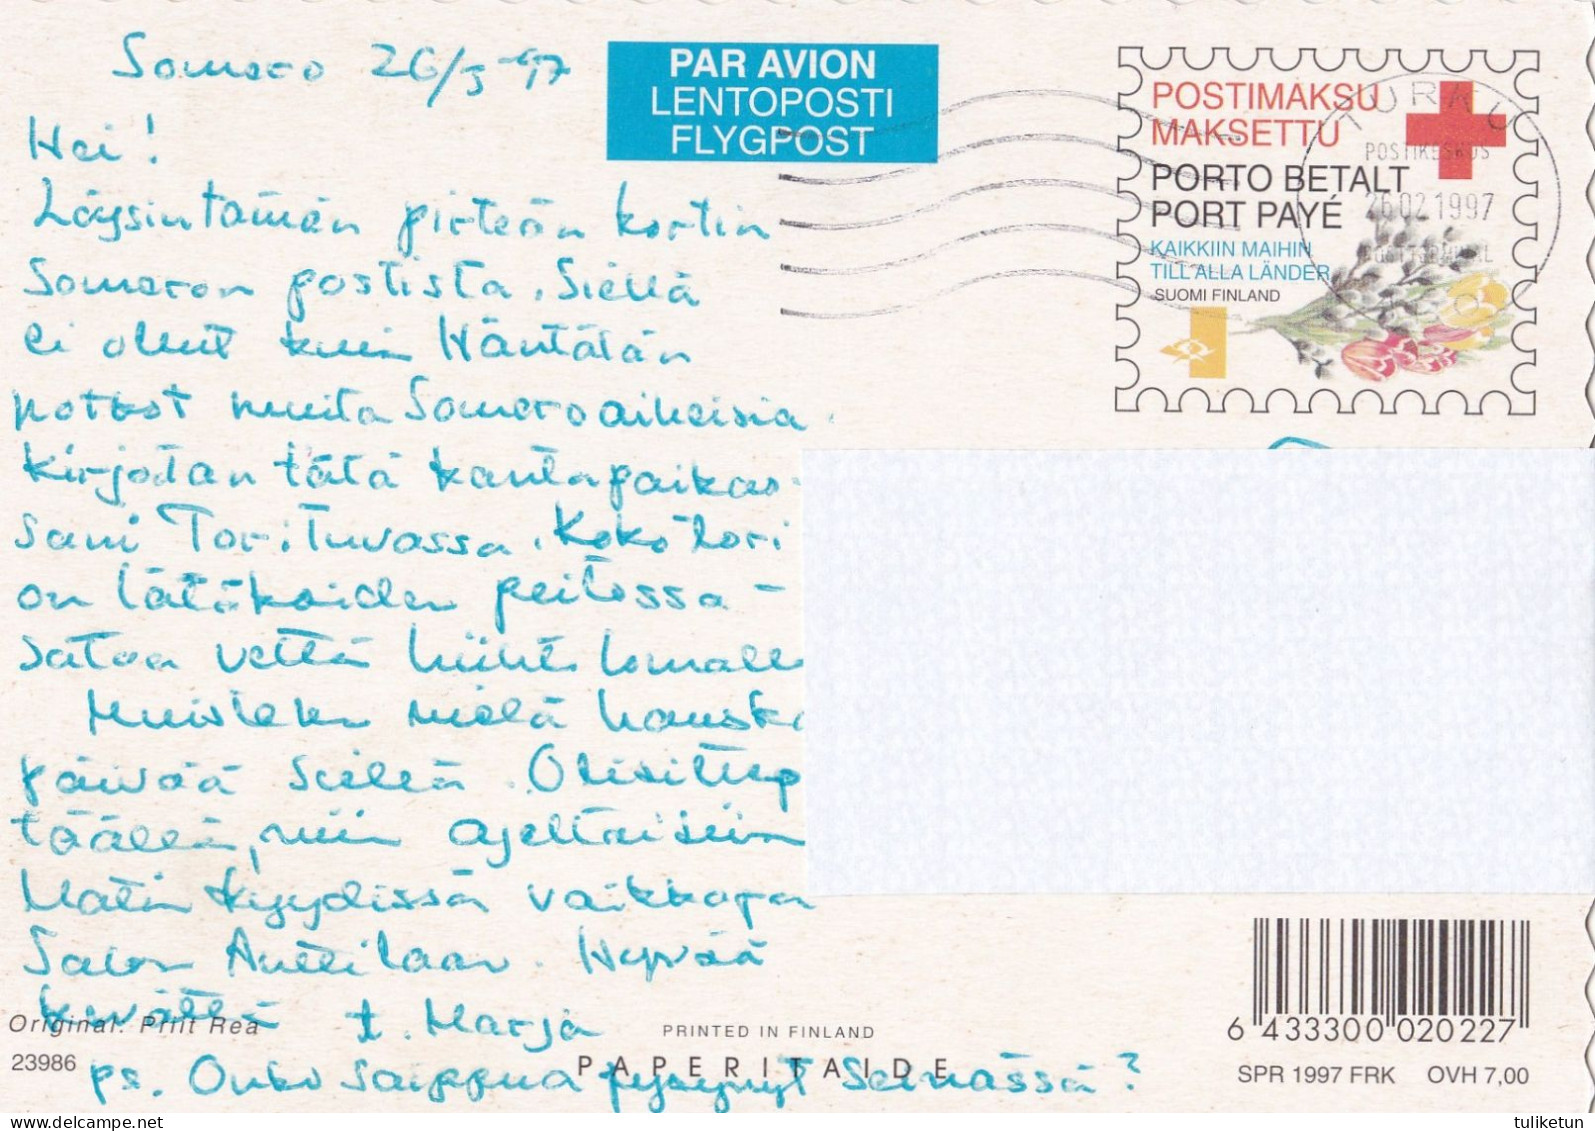 Somero 26/3-97
PAR AVION
LENTOPOSTI
FLYGPOST
POSTIMAKSU
MAKSETTU
PORTO BETALT
PORT PAYÉ
KAIKKIIN MAIHIN
TILL ALLA LÄNDER
SUOMI FINLAND
TURKU
POSTIKESKUS
26.02.1997
Hei!
Löysin tämän pirteän kortin
Someron postista. Siellä
ei ollut kuin Häntälän
notkot muita Someroaiheisia.
Kirjoitan tätä kantapaikas-
sani ToriTuvassa. Koko tori
on lätäköiden peitossa -
sataa vettä hiihtolomall
Muistelen vielä hauska
päivää siellä. Olisittep
täällä, niin ajeltaisiin
Matin kyydissä vaikkapa
Salon Anttilaan. Hyvää
kevättä t. Marja
ps. Onko saippua pysynyt seinässä?
Original: Priit Rea
23986
PRINTED IN FINLAND
PAPERITAIDE
6 433300 020227
SPR 1997 FRK OVH 7,00
tuliketun